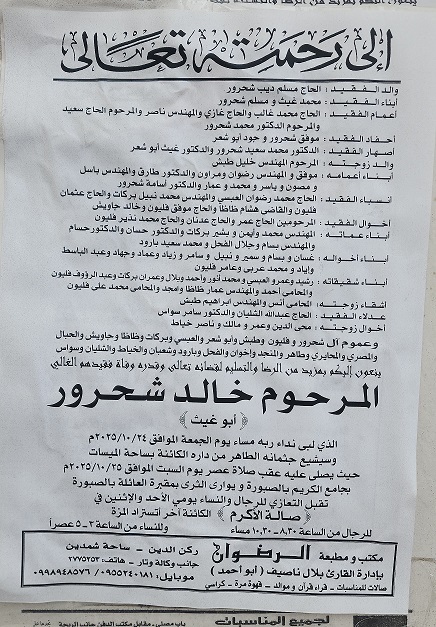 إلى رحمته تعالى
والد الفقيد : الحاج مسلم ديب شحرور
أبناء الفقيد : محمد غيث و مسلم شحرور
أعمام الفقيد : الحاج محمد غالب والحاج غازي والمهندس ناصر والمرحوم الحاج سعيد
والمرحوم الدكتور محمد شحرور
أحفاد الفقيد : موفق شحرور و جود أبو شعر
أصهار الفقيد : الدكتور محمد سعيد شحرور والدكتور غيث أبو شعر
والد زوجته : المرحوم المهندس خليل طبش
أبناء أعمامه : موفق و المهندس رضوان ومروان والدكتور طارق والمهندس باسل
و مصون و ياسر و محمد و عمار والدكتور أسامة شحرور
أنسباء الفقيد : الحاج محمد رضوان العبسي والمهندس محمد نبيل بركات والحاج عثمان
قليون والقاضي هشام ظاظا والحاج موفق قليون و خالد جاويش
أخوال الفقيد : المرحومين الحاج عمر والحاج عدنان والحاج محمد نذير قليون
أبناء عماته : المهندس محمد وأيمن و بشير بركات والدكتور حسان والدكتور حسام
والمهندس بسام وجلال الفحل و محمد سعيد بارود
أبناء أخواله : غسان و بسام و سمير و نبيل و سامر و زياد وعماد وجهاد وعبد الباسط
وإياد و محمد عربي وعامر قليون
أبناء شقيقاته : رشيد وعمرو العبسي و محمد أنور وأحمد وبلال وعمران بركات وعبد الرؤوف قليون
والمحامي أحمد والمهندس عمار ظاظا وأمجد والمحامي محمد علي قليون
أشقاء زوجته : المحامي أنس والمهندس ابراهيم طبش
عدلاء الفقيد : الحاج عبدالله الشليان والدكتور سامر سواس
أخوال زوجته : محي الدين وعمر و مالك و ناصر خياط
وعموم آل شحرور و قليون وطبش وأبو شعر والعبسي وبركات وظاظا وجاويش والحبال
والمصري والمحايري وطاهر والمنجد وإخوان والفحل وبارود وشعبان والخياط والشليان وسواس
ينعون إليكم بمزيد من الرضا والتسليم لقضائه تعالى وقدره وفاة فقيدهم الغالي
المرحوم خالد شحرور
﴿ أبو غيث ﴾
الذي لبى نداء ربه مساء يوم الجمعة الموافق ٢٠٢٥/١٠/٢٤م
وسيشيع جثمانه الطاهر من داره الكائنة بساحة الميسات
حيث يصلى عليه عقب صلاة عصر يوم السبت الموافق ٢٠٢٥/١٠/٢٥م
بجامع الكريم بالصبورة و يوارى الثرى بمقبرة العائلة بالصبورة
تقبل التعازي للرجال والنساء يومي الأحد والإثنين في
﴿ صالة الأكرم ﴾ الكائنة آخر أتستراد المزة
للرجال من الساعة ٨,٣٠ - ١٠,٣٠ مساء وللنساء من الساعة ٣ - ٥ عصراً
مكتب و مطبعة الرضوان ركن الدين - ساحة شمدين
بإدارة القارئ بلال ناصيف ( أبو أحمد ) جانب وكالة وتار - هاتف: ٢٧٧٥٢٥٣
صالات للمناسبات - قراء قرآن و موالد - قهوة مرة - كراسي موبايل: ٠٩٥٥٢٤٠١٨١ / ٠٩٩٨٩٤٨٥٧٦
لجميع المناسبات